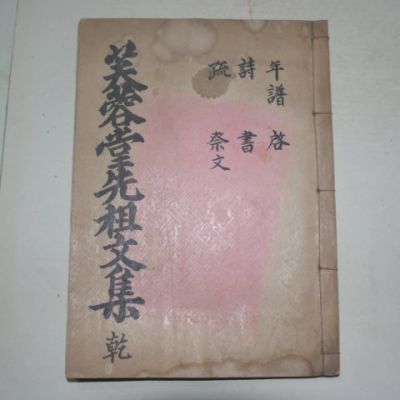 年譜 啓
詩 書
疏 祭文
芙蓉堂先祖文集 乾